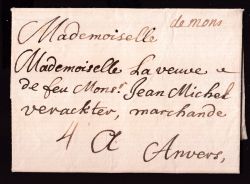 de mons
Mademoiselle
Mademoiselle La veuve
de feu Mons.r Jean Michel
verackter, marchande
4 A
Anvers,